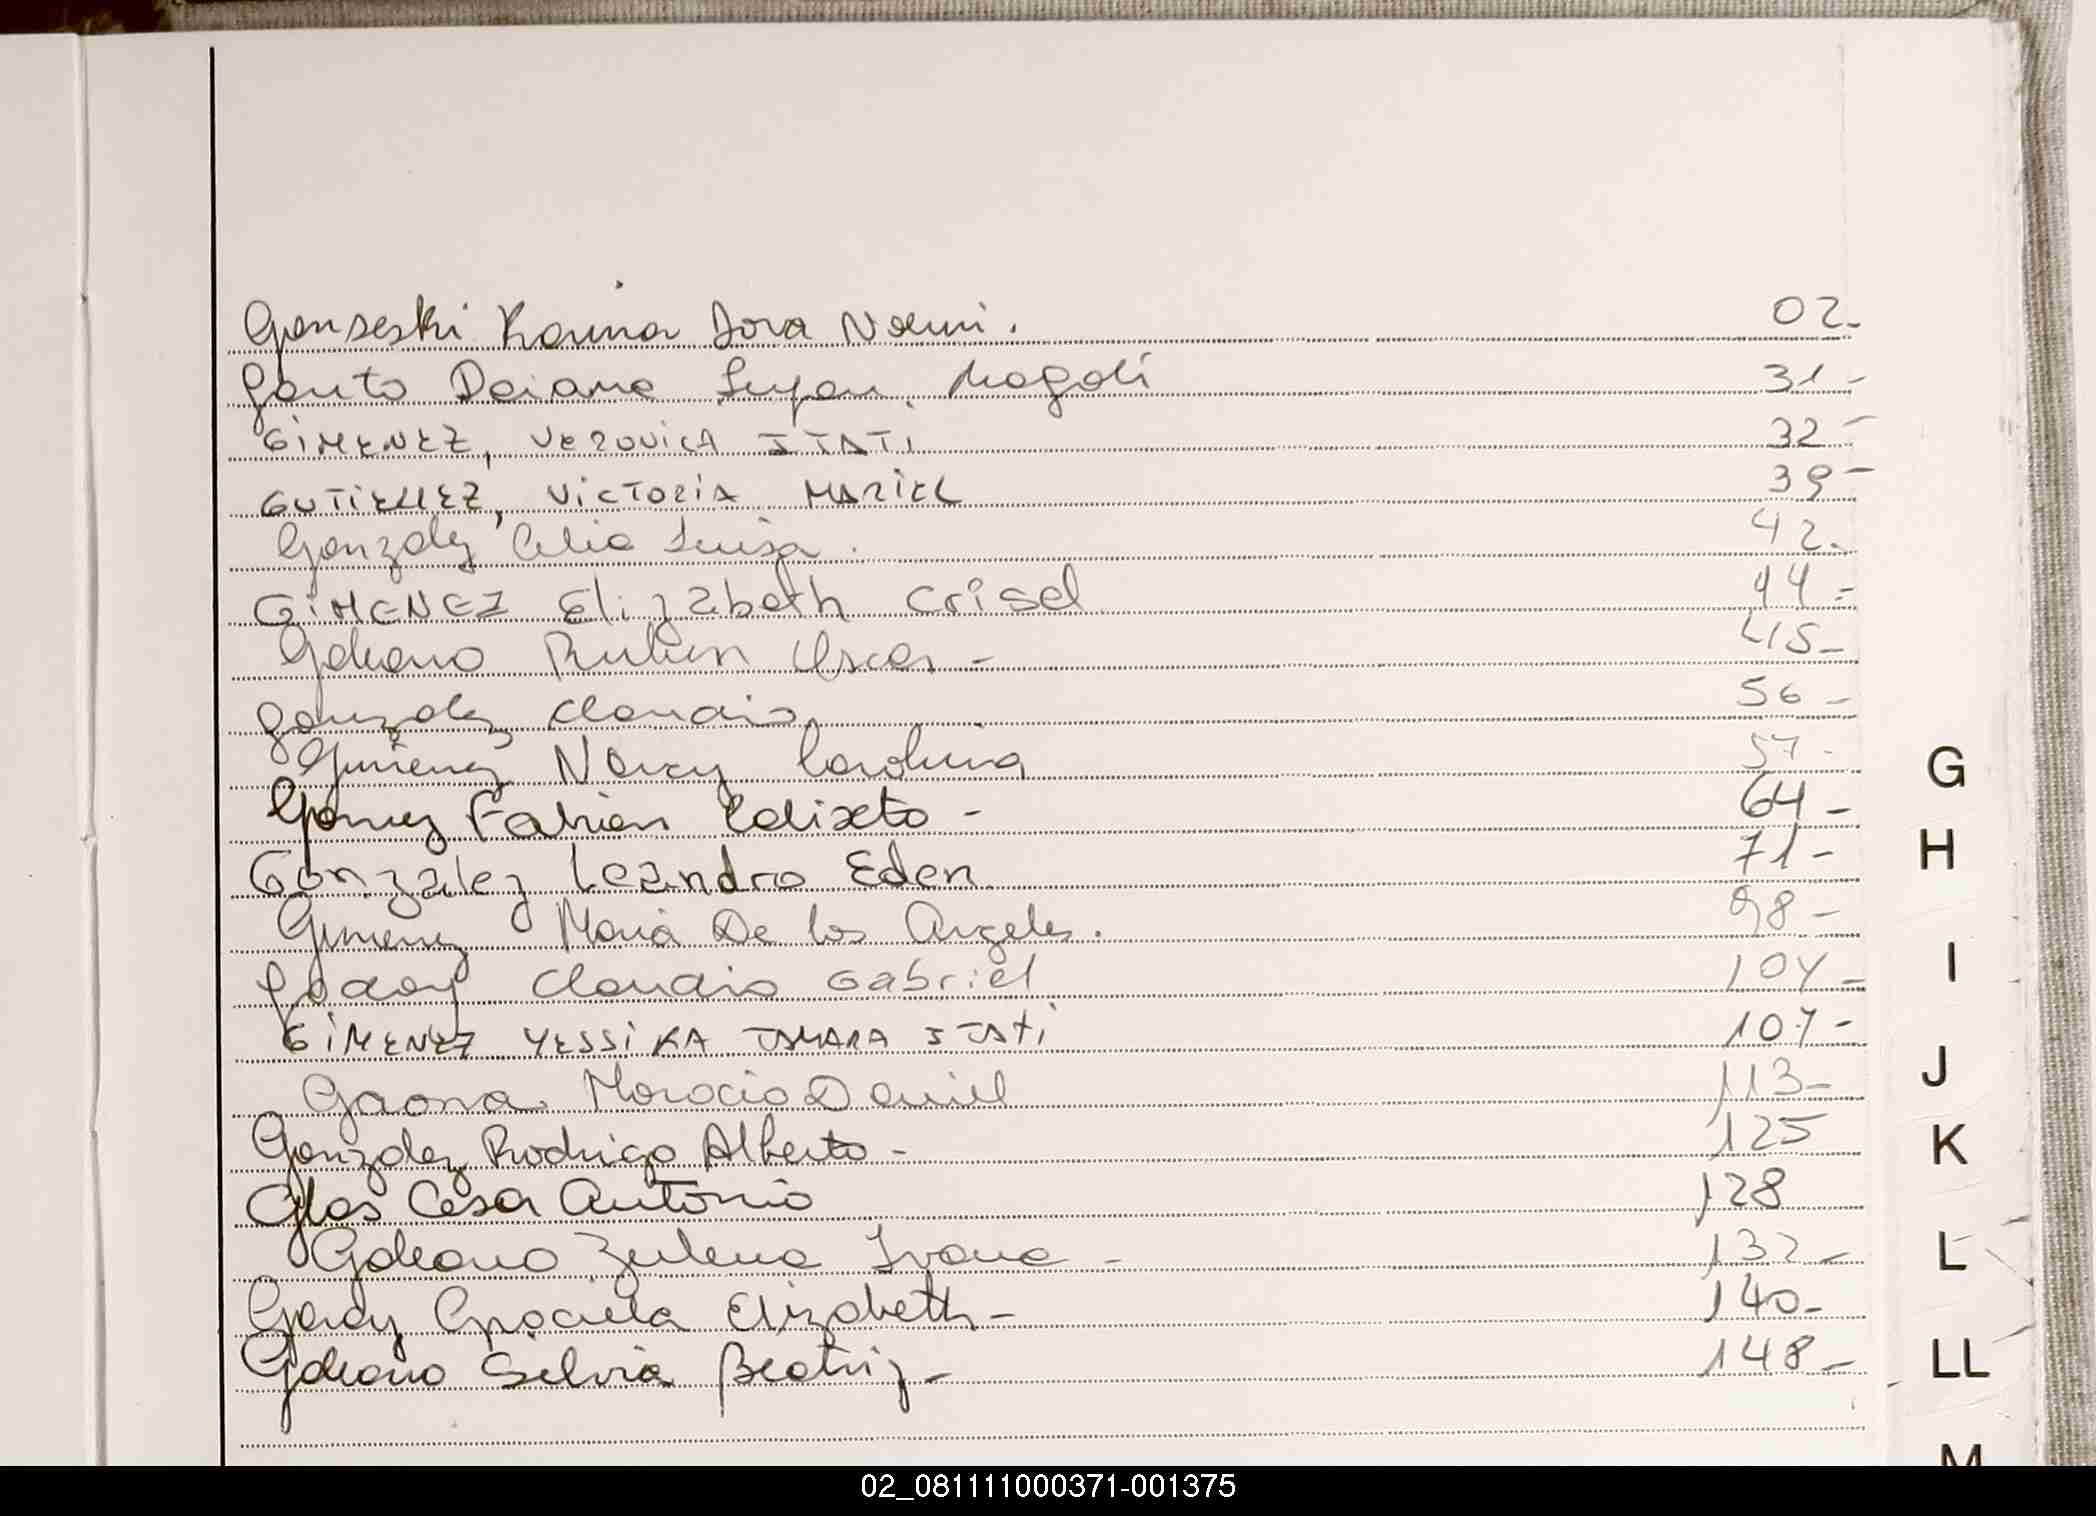 Gonseski Karina Dora Noemi. 02-
Gauto Daiana Magali 31-
GIMENEZ, VERONICA ITATI 32-
GUTIERREZ, VICTORIA MARIEL 39-
Gonzalez Celia Luisa. 42.
GIMENEZ Elizabeth Crisel 44-
Galeano Ruben Oscar - 45-
Gonzalez Claudio 56-
Gimenez Nancy Carolina 57-
Gomez Fabian Calixto - 64-
González Leandro Eden 71-
Gimenez Maria De los Angeles. 98-
Godoy Claudio Gabriel 104-
GIMENEZ YESSIKA TAMARA ITATI 107-
Gaona Horacio Daniel 113-
Gonzalez Rodrigo Alberto - 125
Glas Cesar Antonio 128
Galeano Zulema Ivana - 132-
Graciela Elizabeth - 140-
Galeano Silvia Beatriz - 148-
G
H
I
J
K
L
LL
M
02_081111000371-001375